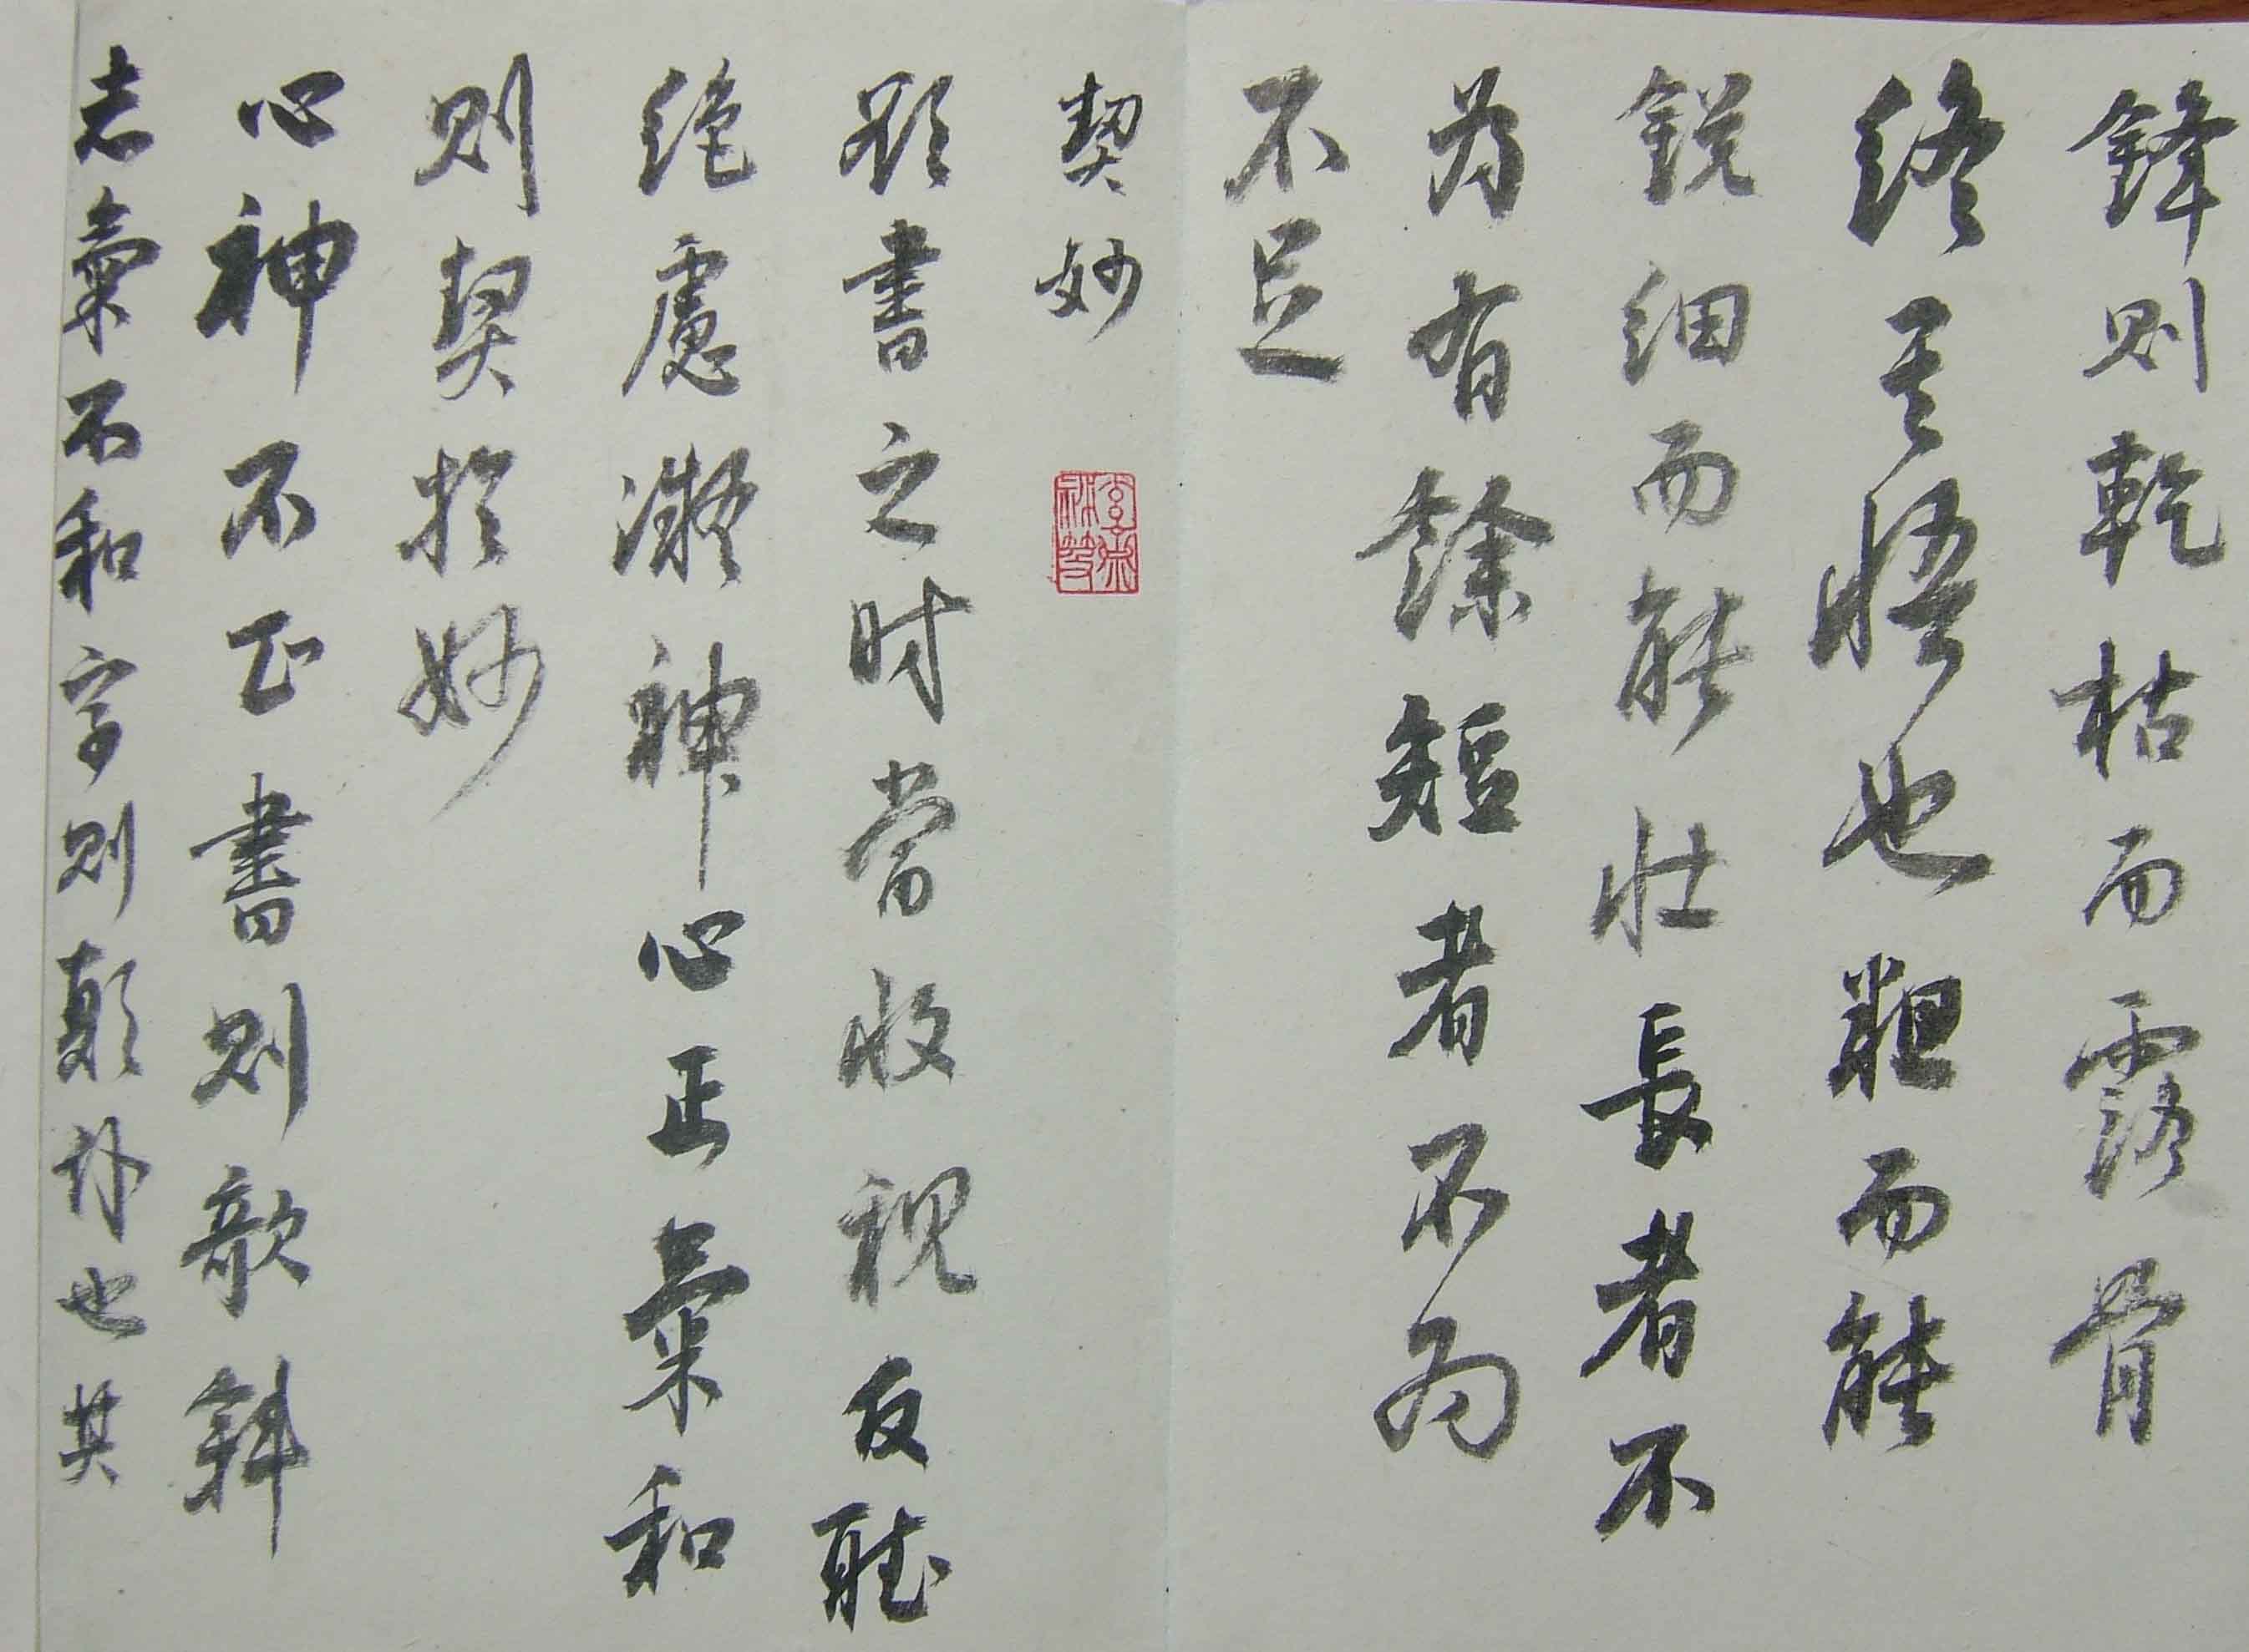 鋒則乾枯而露骨
終其悟也粗而能
銳細而能壯長者不
為有餘短者不為
不足
契妙
欲書之時當收視反聽
絕慮凝神心正氣和
則契於妙
心神不正書則欹斜
志氣不和字則顛仆也其